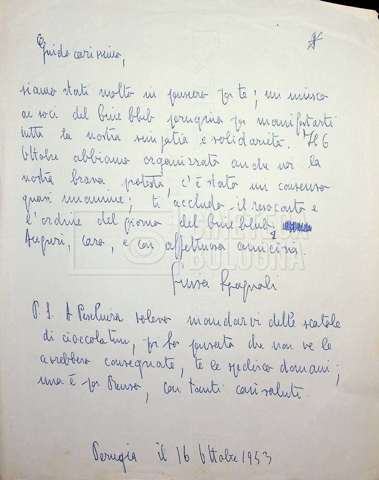 Guido carissimo,
siamo stati molto in pensiero per te; mi unisco
ai soci del Cine Club perugino per manifestarti
tutta la nostra simpatia e solidarietà. Il 6
Ottobre abbiamo organizzato anche noi la
nostra brava protesta, c'è stato un consenso
quasi unanime; ti accludo il resoconto e
l'ordine del giorno del Cine Club.
Auguri, caro, e con affettuosa amicizia.
Luisa Spagnoli
P.S. A Peschiera volevo mandarvi delle scatole
di cioccolatini, poi ho pensato che non ve le
avrebbero consegnate, te le spedisco domani;
una è per Renzo, con tanti cari saluti.
Perugia il 16 Ottobre 1953
BOLOGNA